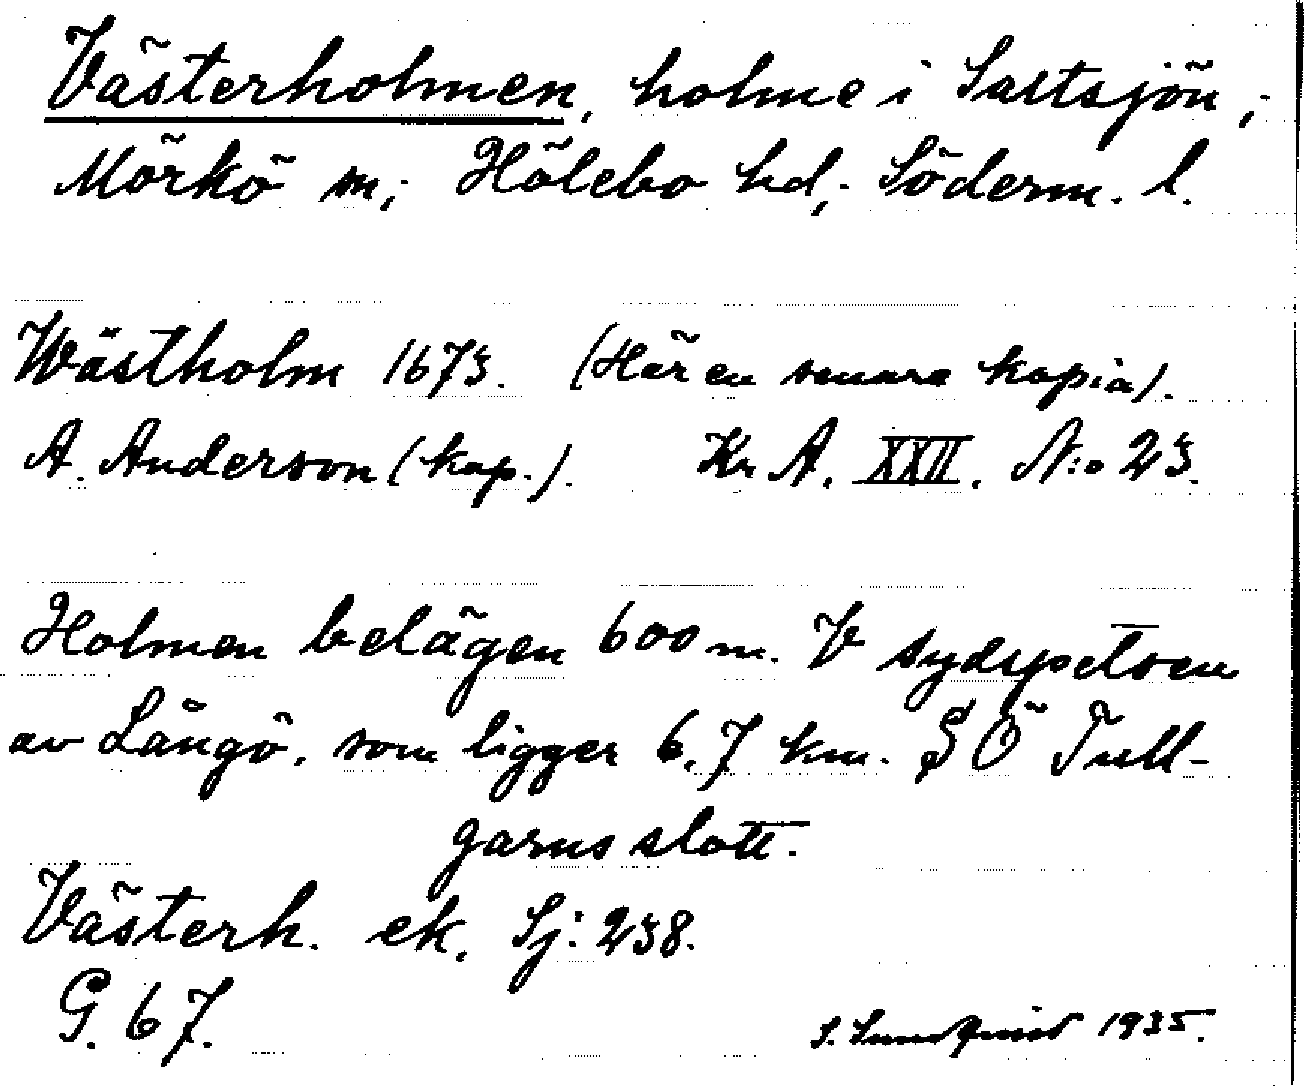 Västerholmen, holme i Saltsjön,
Mörkö sn, Hölebo hd, Söderm. l.
Wästholm 1673. (Här en senare kopia).
A. Anderson (kap.). Kr A. XXII. N:o 23.
Holmen belägen 600 m. V sydspetsen
av Långö, som ligger 6,7 km. S Ö Tull-
garns slott.
Västerh. ek. Sj: 238.
G. 67.
S. Sundqvist 1935.